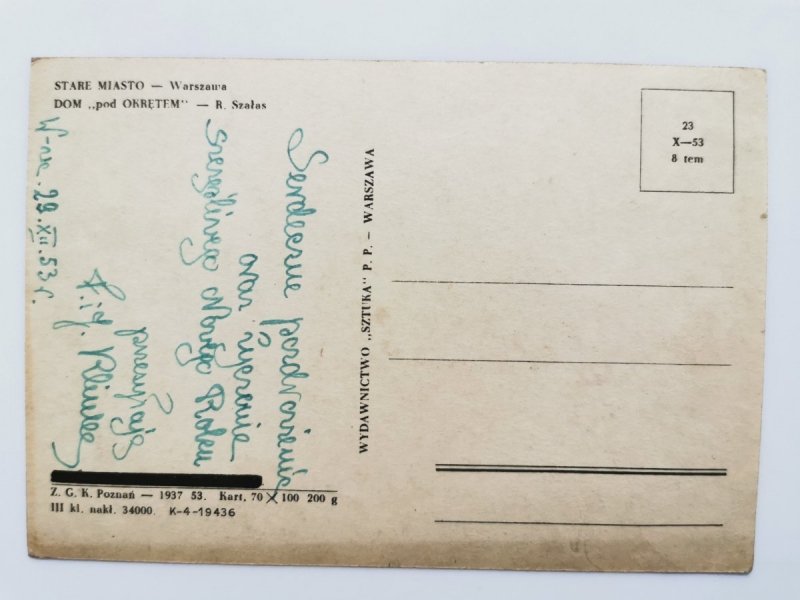 STARE MIASTO — Warszawa
DOM „pod OKRĘTEM" — R. Szałas
23
X—53
8 tem
Serdeczne pozdrowienia
oraz życzenia
szczęśliwego Nowego Roku
przesyłają
W-wa. 29.XII.53 r.
WYDAWNICTWO „SZTUKA" P. P. — WARSZAWA
Z. G. K. Poznań — 1937 53. Kart. 70×100 200 g
III kl. nakł. 34000. K-4-19436